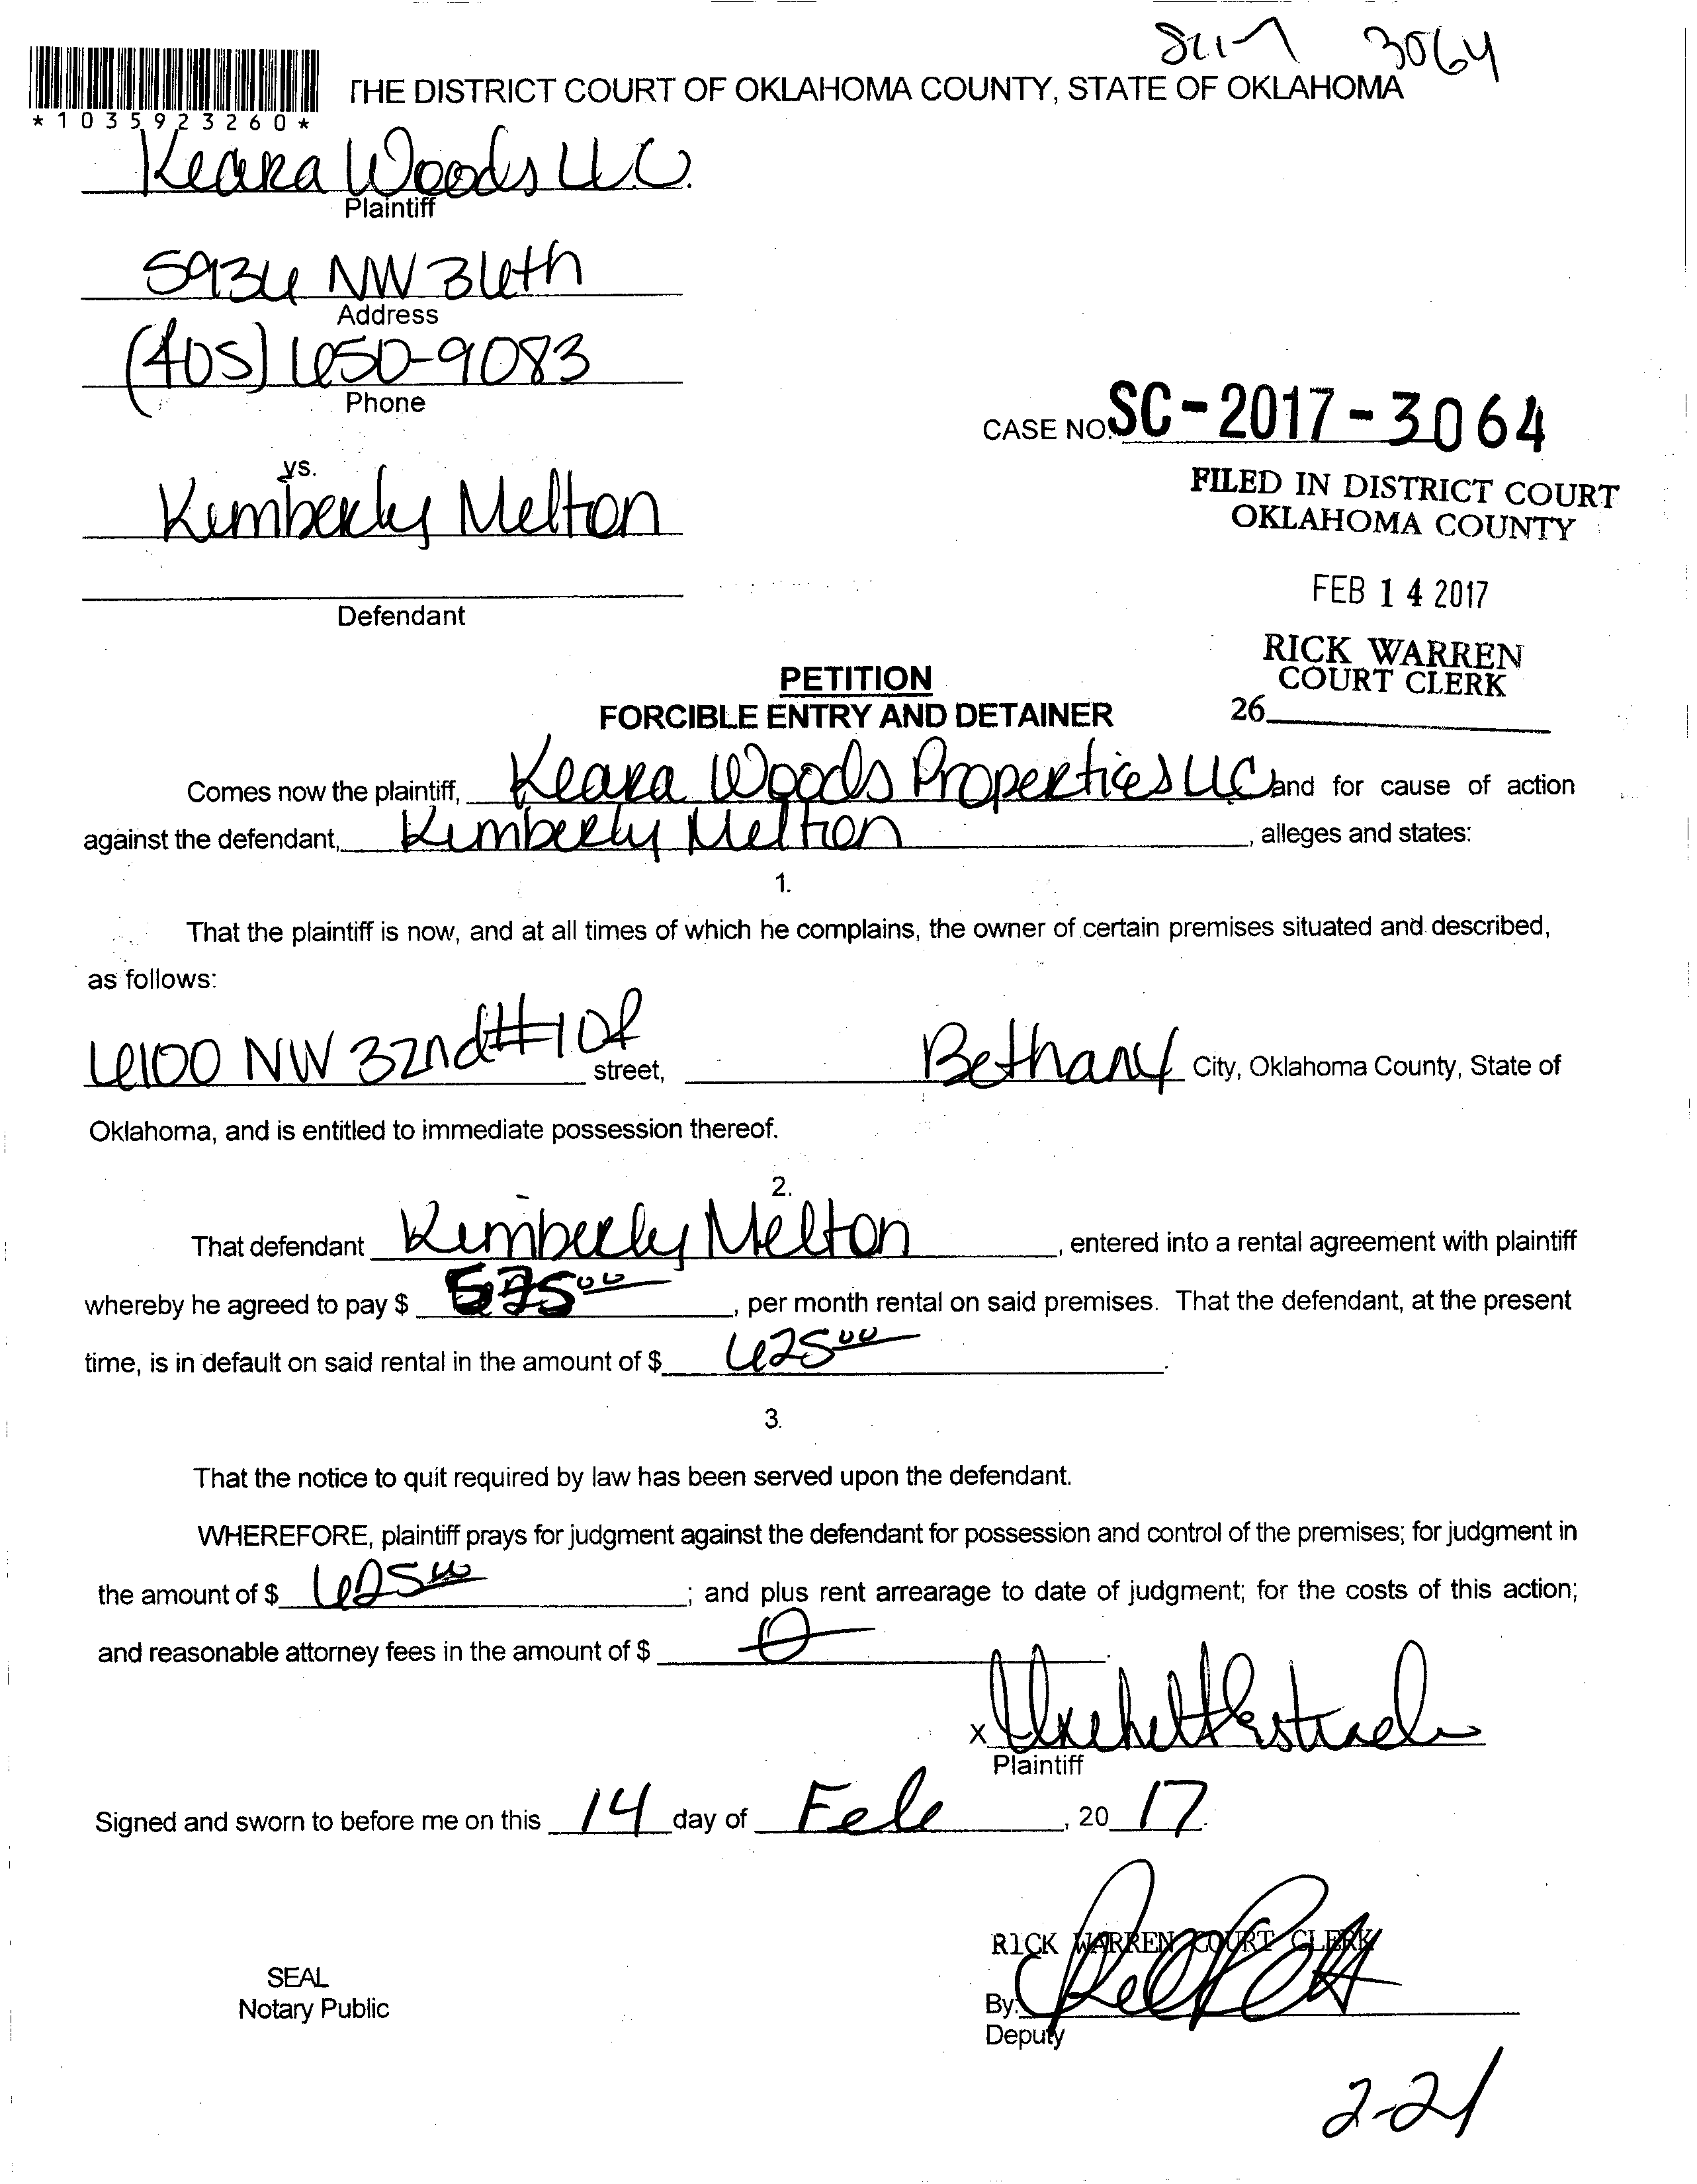 SC17 3064
THE DISTRICT COURT OF OKLAHOMA COUNTY, STATE OF OKLAHOMA
*1035923260*
Keara Woods LLC.
Plaintiff
5936 NW 36th
Address
(405) 650-9083
Phone
CASE NO. SC-2017-3064
FILED IN DISTRICT COURT
OKLAHOMA COUNTY
vs.
Kimberly Melton
FEB 14 2017
Defendant
RICK WARREN
COURT CLERK
26
PETITION
FORCIBLE ENTRY AND DETAINER
Comes now the plaintiff, Keara Woods Properties LLC and for cause of action
against the defendant, Kimberly Melton, alleges and states:
1.
That the plaintiff is now, and at all times of which he complains, the owner of certain premises situated and described,
as follows:
6100 NW 32nd #10 street, Bethany City, Oklahoma County, State of
Oklahoma, and is entitled to immediate possession thereof.
2.
That defendant Kimberly Melton, entered into a rental agreement with plaintiff
whereby he agreed to pay $ 575 00, per month rental on said premises. That the defendant, at the present
time, is in default on said rental in the amount of $ 625 00.
3.
That the notice to quit required by law has been served upon the defendant.
WHEREFORE, plaintiff prays for judgment against the defendant for possession and control of the premises; for judgment in
the amount of $ 625 00; and plus rent arrearage to date of judgment; for the costs of this action;
and reasonable attorney fees in the amount of $ 0.
x
Plaintiff
Signed and sworn to before me on this 14 day of Feb, 20 17.
RICK WARREN COURT CLERK
SEAL
Notary Public
By:
Deputy
2-21